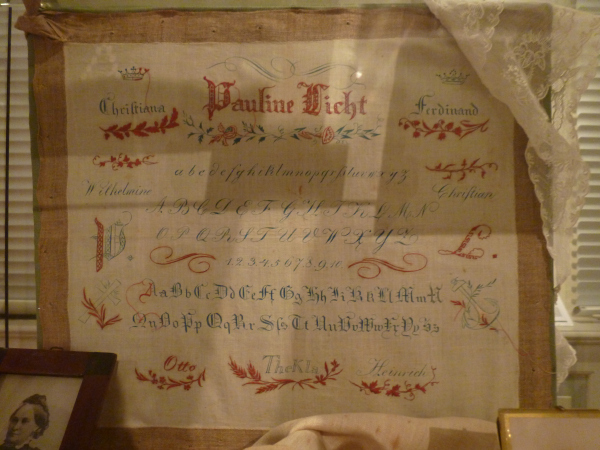 Christiana Pauline Licht Ferdinand
a b c d e f g h i k l m n o p q r s t u v w x y z
Wilhelmine Christian
A B C D E F G H I J K L M N
O P Q R S T U V W X Y Z
P. L.
1. 2. 3. 4. 5. 6. 7. 8. 9. 10.
Aa Bb Cc Dd Ee Ff Gg Hh Ii Kk Ll Mm N
Nn Oo Pp Qq Rr Ss Tt Uu Vv Ww Xx Yy Zz
Otto Thekla Heinrich